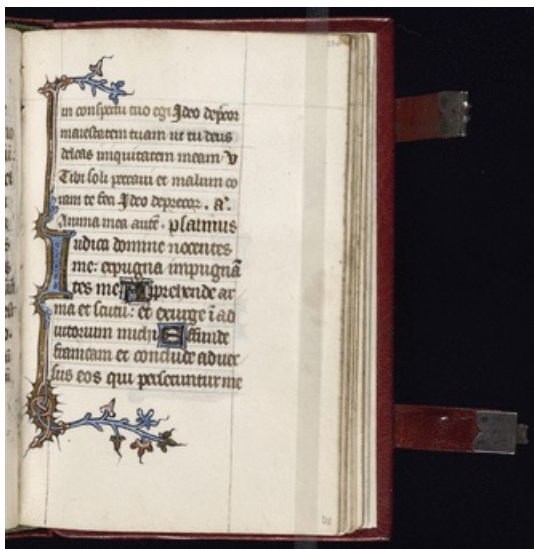 in conspectu tuo egi Ideo dep̄cor
maiestatem tuam ut tu deus
deleas iniquitatem meam V
Tibi soli peccaui et malum co
ram te feci Ideo deprecor. a̓.
Anima mea aut̄. psalmus
Iudica domine nocentes
me: expugna impugnā
tes me Apprehende ar
ma et scutū: et exurge ī ad
iutorium michi Effunde
frameam et conclude aduer
sus eos qui persecuntur me